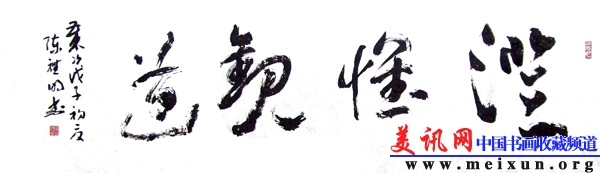 澄懷觀道
歲次戊子初夏
陈 书
美讯网 中国书画收藏频道
www.meixun.org